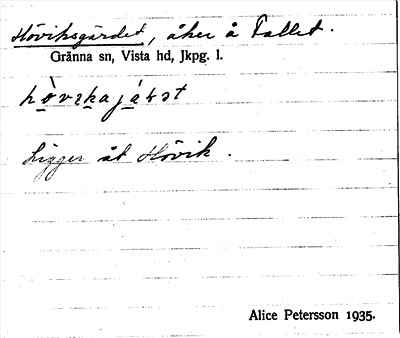 Höviksgärdet, åker å Tallet.
Gränna sn, Vista hd, Jkpg. l.
Ligger åt Hövik.
Alice Petersson 1935.